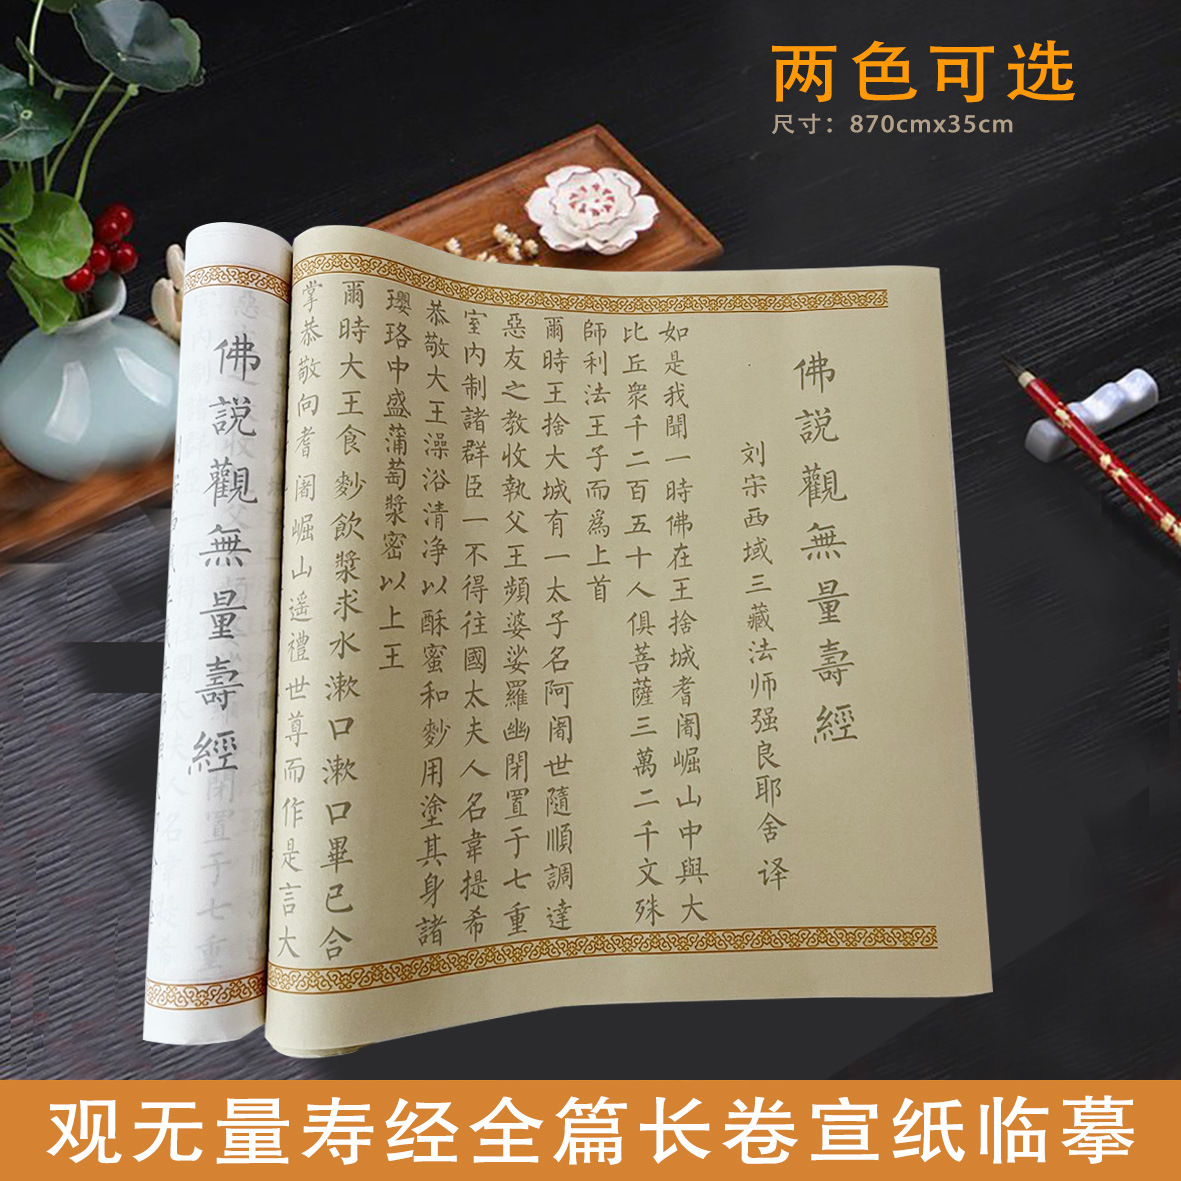 两色可选
尺寸：870cmx35cm
佛説觀無量壽經
刘宋西域三藏法师强良耶舍 译
如是我聞一時佛在王捨城耆闍崛山中與大
比丘衆千二百五十人俱菩薩三萬二千文殊
師利法王子而爲上首
爾時王捨大城有一太子名阿闍世隨順調達
惡友之教收執父王頻婆娑羅幽閉置于七重
室内制諸群臣一不得往國太夫人名韋提希
恭敬大王澡浴清净以酥蜜和麨用塗其身諸
瓔珞中盛蒲萄漿密以上王
爾時大王食麨飲漿求水漱口漱口畢已合
掌恭敬向耆闍崛山遥禮世尊而作是言大
佛説觀無量壽經
观无量寿经全篇长卷宣纸临摹